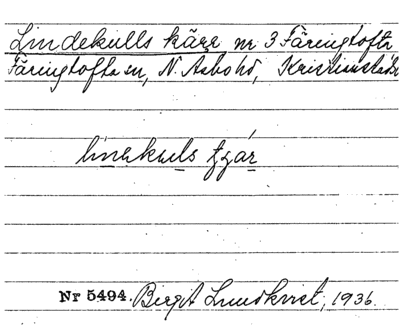 Lindekulls kärr nr 3 Färingtofta
Färingtofta sn, N. Åsbo hd, Kristianstads
linekuls tzár
Nr 5494. Birgit Lundkvist, 1936.